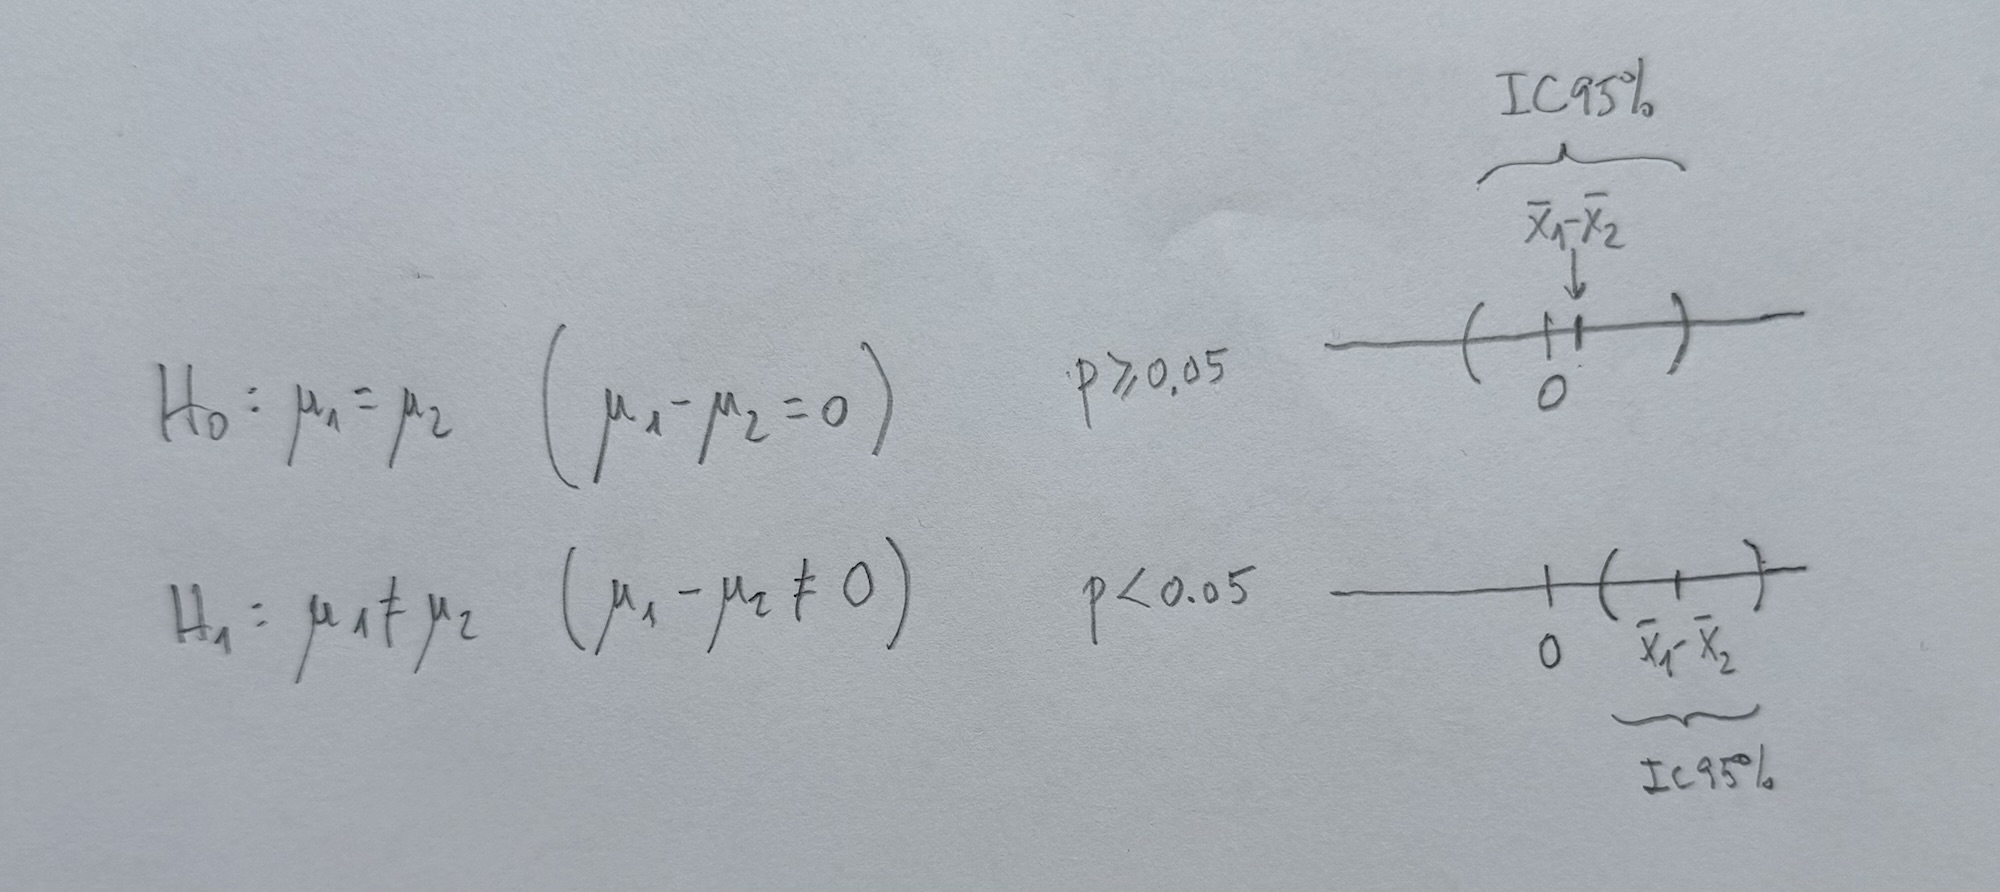 IC95%
x̄₁-x̄₂
H₀: μ₁=μ₂ (μ₁-μ₂=0) p⩾0.05
0
H₁: μ₁≠μ₂ (μ₁-μ₂≠0) p<0.05
0 x̄₁-x̄₂
IC95%